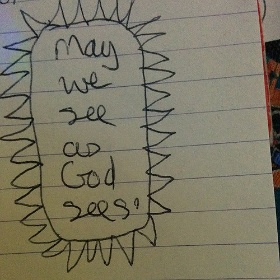 May
we
see
as
God
sees!